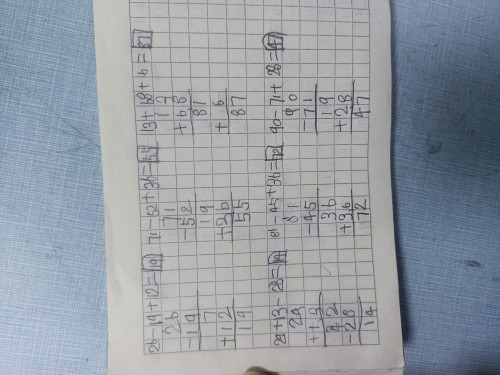 26-19+12=19 71-52+36=55 13+68+6=87
26 71 13
-19 -52 +68
7 19 81
+12 +36 +6
19 55 87
29+13-28=14 81-45+36=72 90-71+28=47
29 81 90
+13 -45 -71
42 36 19
-28 +36 +28
14 72 47